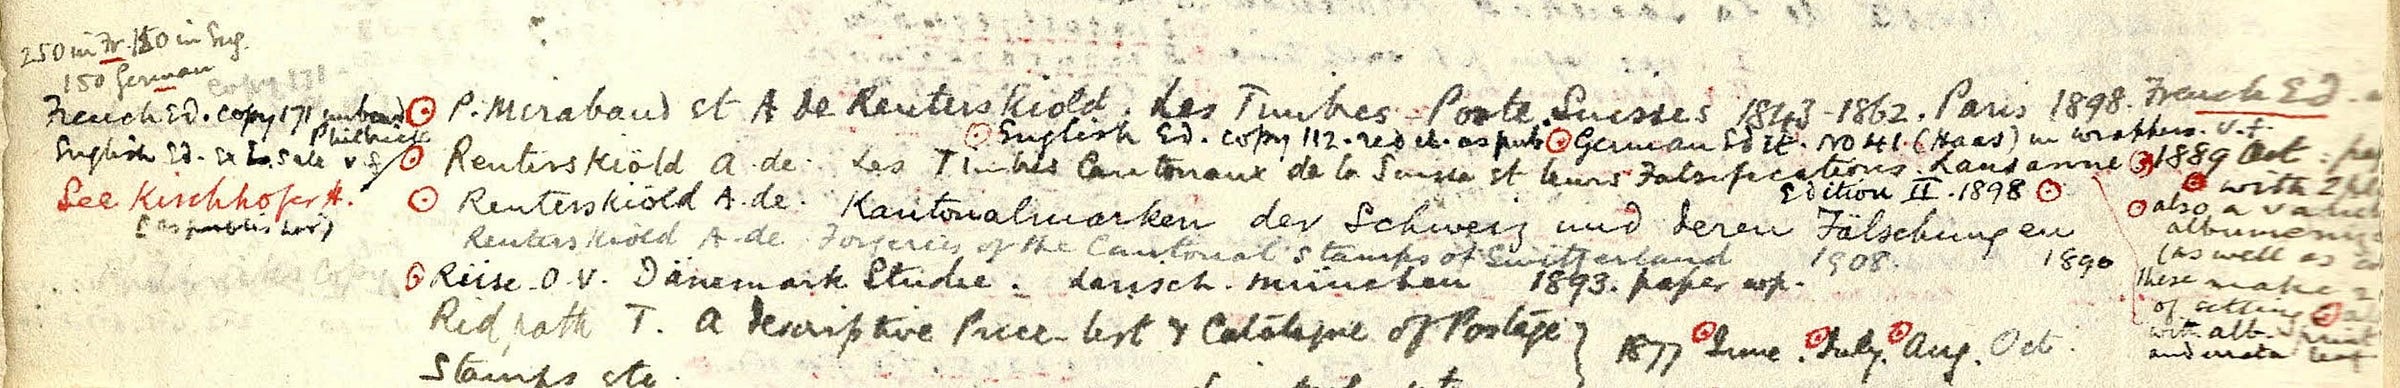 250 in Fr. 150 in Eng.
150 German
copy 171
French Ed. copy 171 unbound
P. Mirabaud et A de Reuterskiold. Les Timbres Poste Suisses 1843-1862. Paris 1898. French Ed.
Philbrick
English Ed. copy 112. red cl. as pub
German Edit. No 41. (Haas) in wrappers. v.f.
English Ed. Ex Sale v f
Reuterskiöld A. de. Les Timbres Cantonaux de la Suisse et leurs Falsifications. Lausanne
1889 Oct.
Edition II. 1898
with 2
See Kirchhofer H.
(as publisher)
Reuterskiöld A. de. Kantonalmarken der Schweiz und deren Fälschungen
1890
also a
Reuterskiöld A. de Forgeries of the Cantonal Stamps of Switzerland 1908.
(as well as
Philbricks Copy
Reise O. V. Dänemark Studie. München 1893. paper wp.
these make 2
of setting
Ridpath T. A descriptive Price-list & Catalogue of Postage
Stamps etc.
1877 June. July. Aug. Oct.
with alb.
and errata